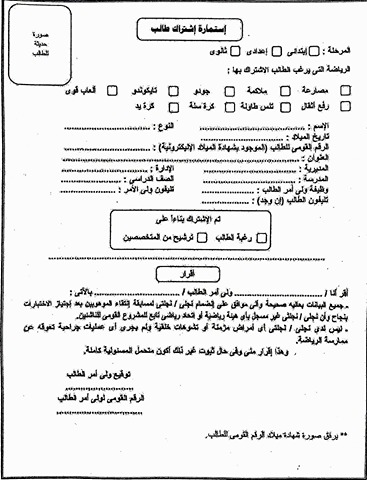 إستمارة إشتراك طالب
صورة
حديثة
للطالب
المرحلة : إبتدائى إعدادى ثانوى
الرياضة التى يرغب الطالب الاشتراك بها :
مصارعة ملاكمة جودو تايكوندو ألعاب قوى
رفع أثقال تنس طاولة كرة سلة كرة يد
الإسم : النوع :
تاريخ الميلاد :
الرقم القومى للطالب (الموجود بشهادة الميلاد الإليكترونية) :
العنوان :
المديرية : الإدارة :
المدرسة : الصف الدراسى :
وظيفة ولى أمر الطالب : تليفون ولى الأمر :
تليفون الطالب (إن وجد) :
تم الإشتراك بناءاً على
رغبة الطالب ترشيح من المتخصصين
أقرار
أقر أنا / ولى أمر الطالب / بالآتى :
- جميع البيانات بعاليه صحيحة وأنى موافق على إنضمام نجلى / نجلتى لمسابقة إنتقاء الموهوبين بعد إجتياز الاختبارات
بنجاح وأن نجلى / نجلتى غير مسجل بأى هيئة رياضية أو إتحاد رياضى تابع للمشروع القومى للناشئين.
- ليس لدي نجلى / نجلتى أى أمراض مزمنة أو تشوهات خلقية ولم يجرى أي عمليات جراحية تعوقه عن
ممارسة الرياضة.
وهذا إقرار منى وفى حال ثبوت غير ذلك أكون متحمل المسئولية كاملة.
توقيع ولى أمر الطالب
الرقم القومى لولى أمر الطالب
** يرفق صورة شهادة ميلاد الرقم القومى للطالب.